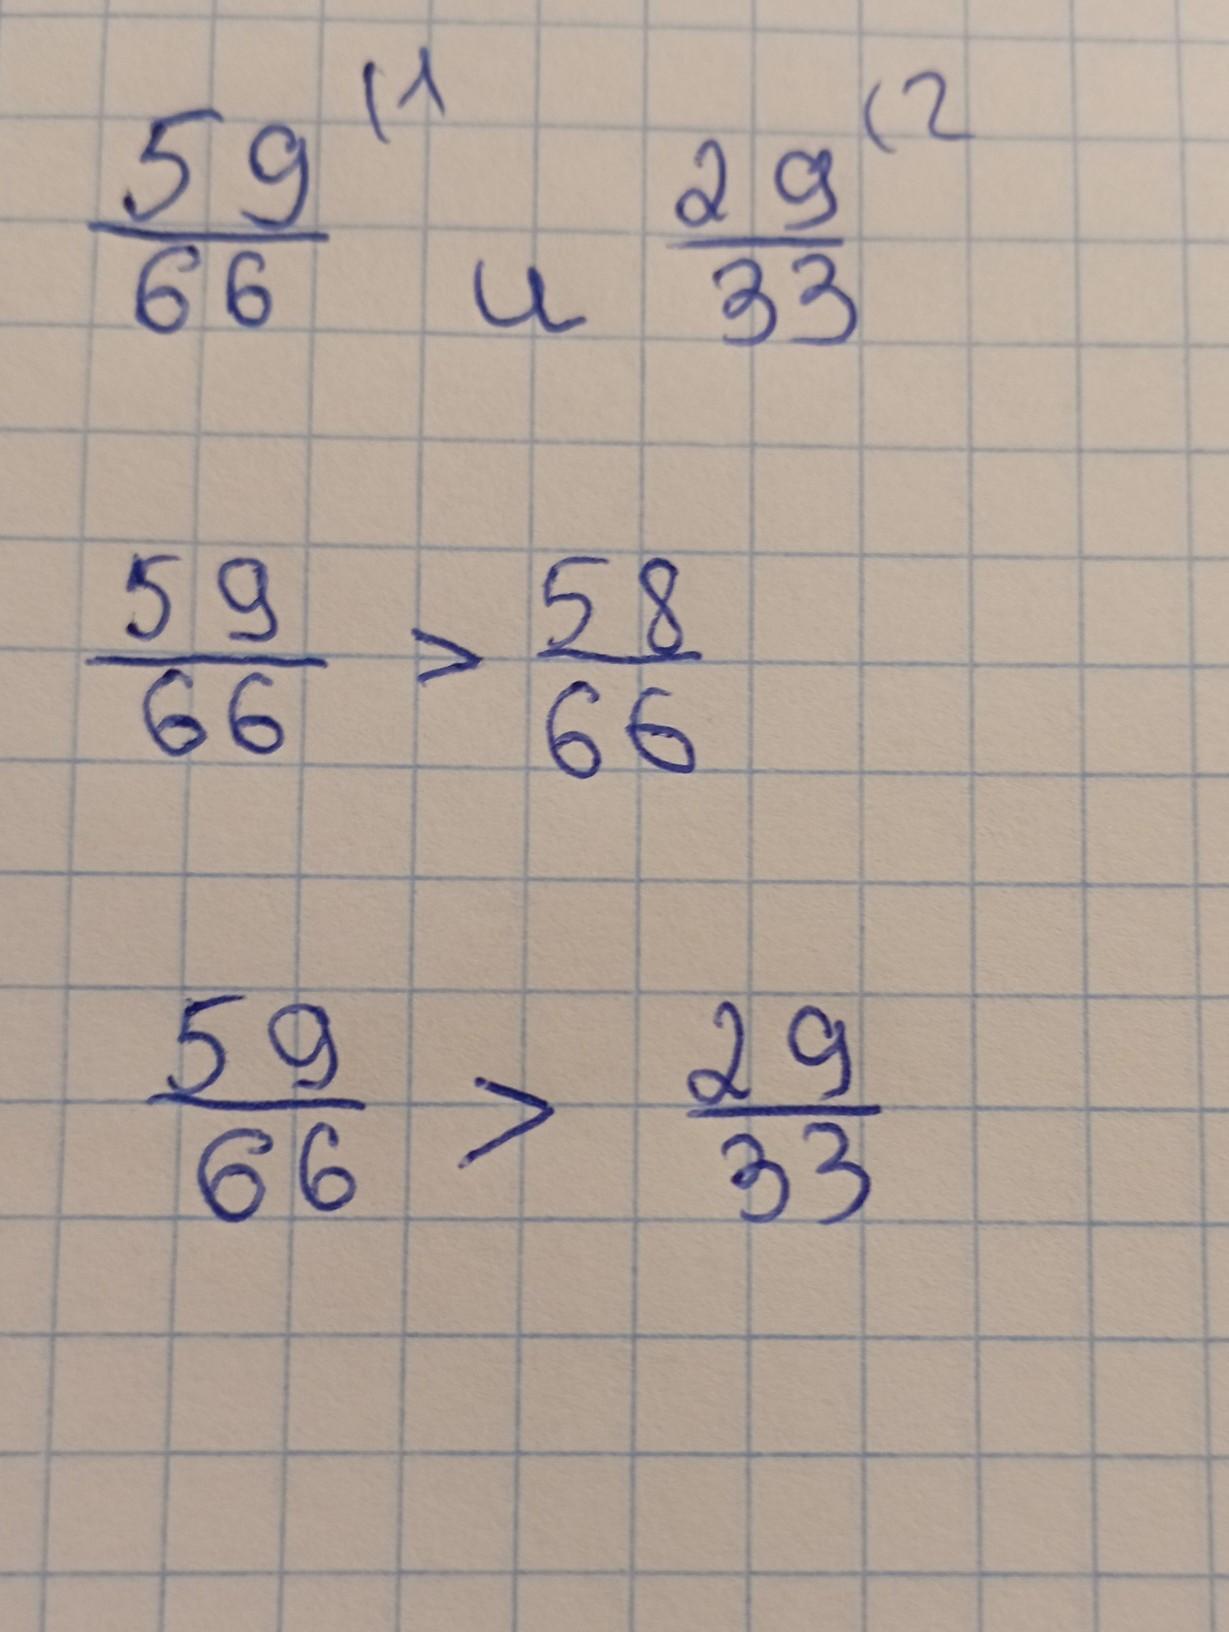 59/66 (1 и 29/33 (2
59/66 > 58/66
59/66 > 29/33